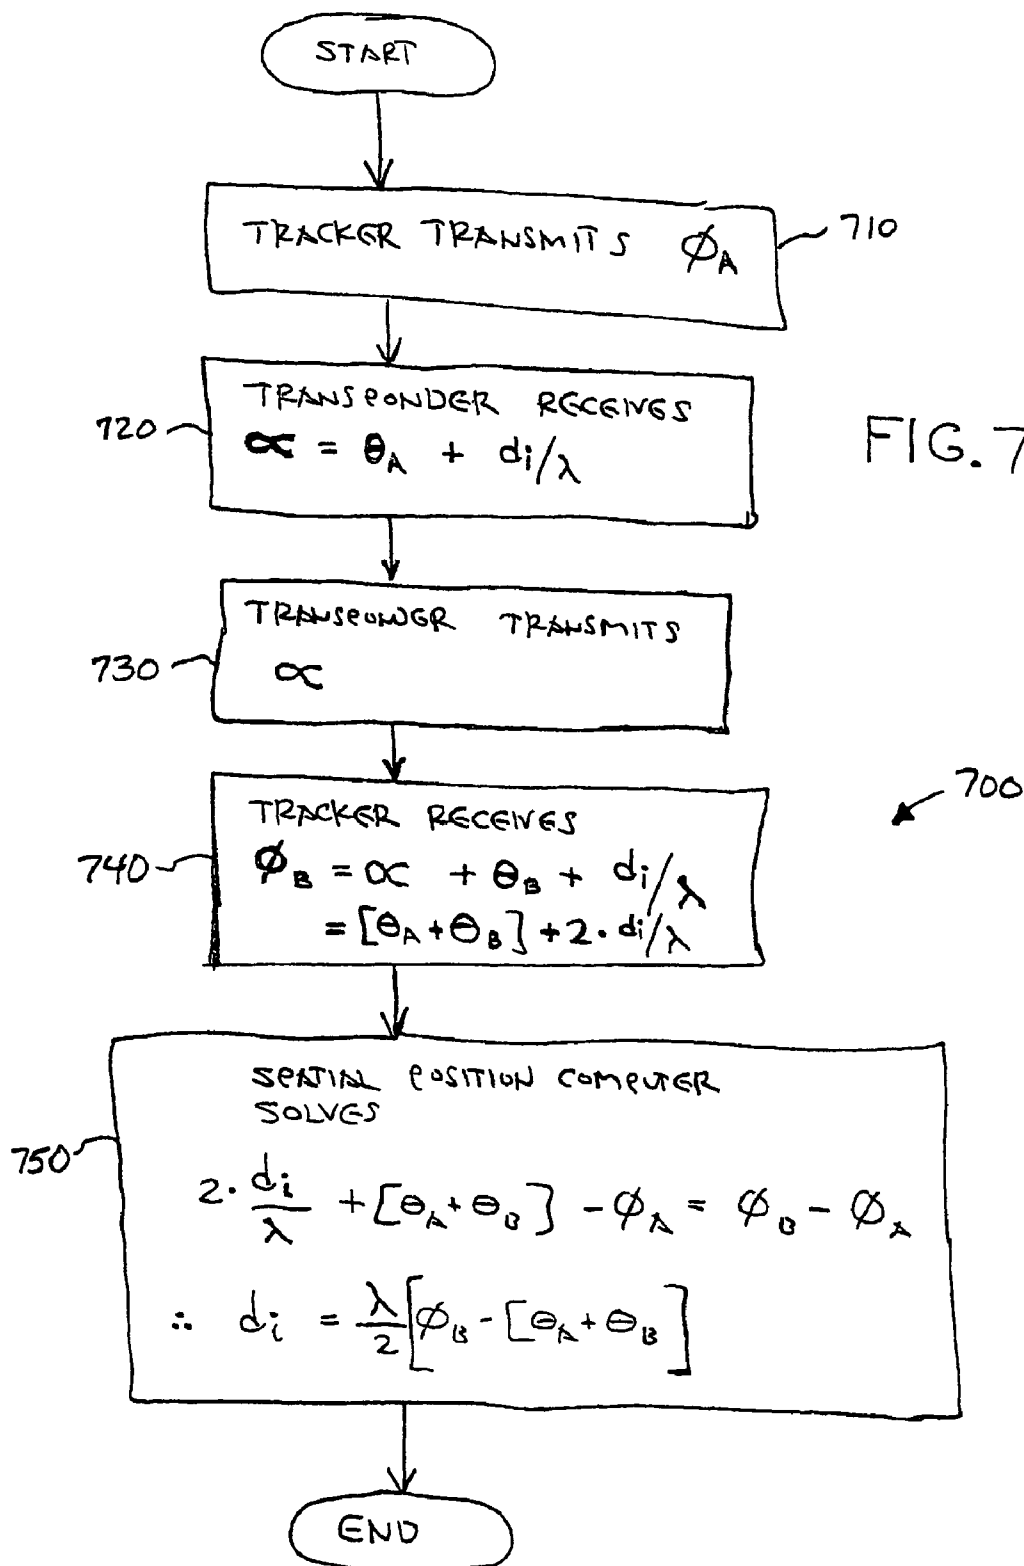 START
TRACKER TRANSMITS ϕ_A
710
TRANSPONDER RECEIVES
720
∝ = θ_A + di/λ
FIG. 7
TRANSPONDER TRANSMITS
730
∝
700
TRACKER RECEIVES
740
ϕ_B = ∝ + θ_B + di/λ
= [θ_A + θ_B] + 2 · di/λ
SPATIAL POSITION COMPUTER
SOLVES
750
2 · di/λ + [θ_A + θ_B] - ϕ_A = ϕ_B - ϕ_A
∴ di = λ/2 [ϕ_B - [θ_A + θ_B]]
END